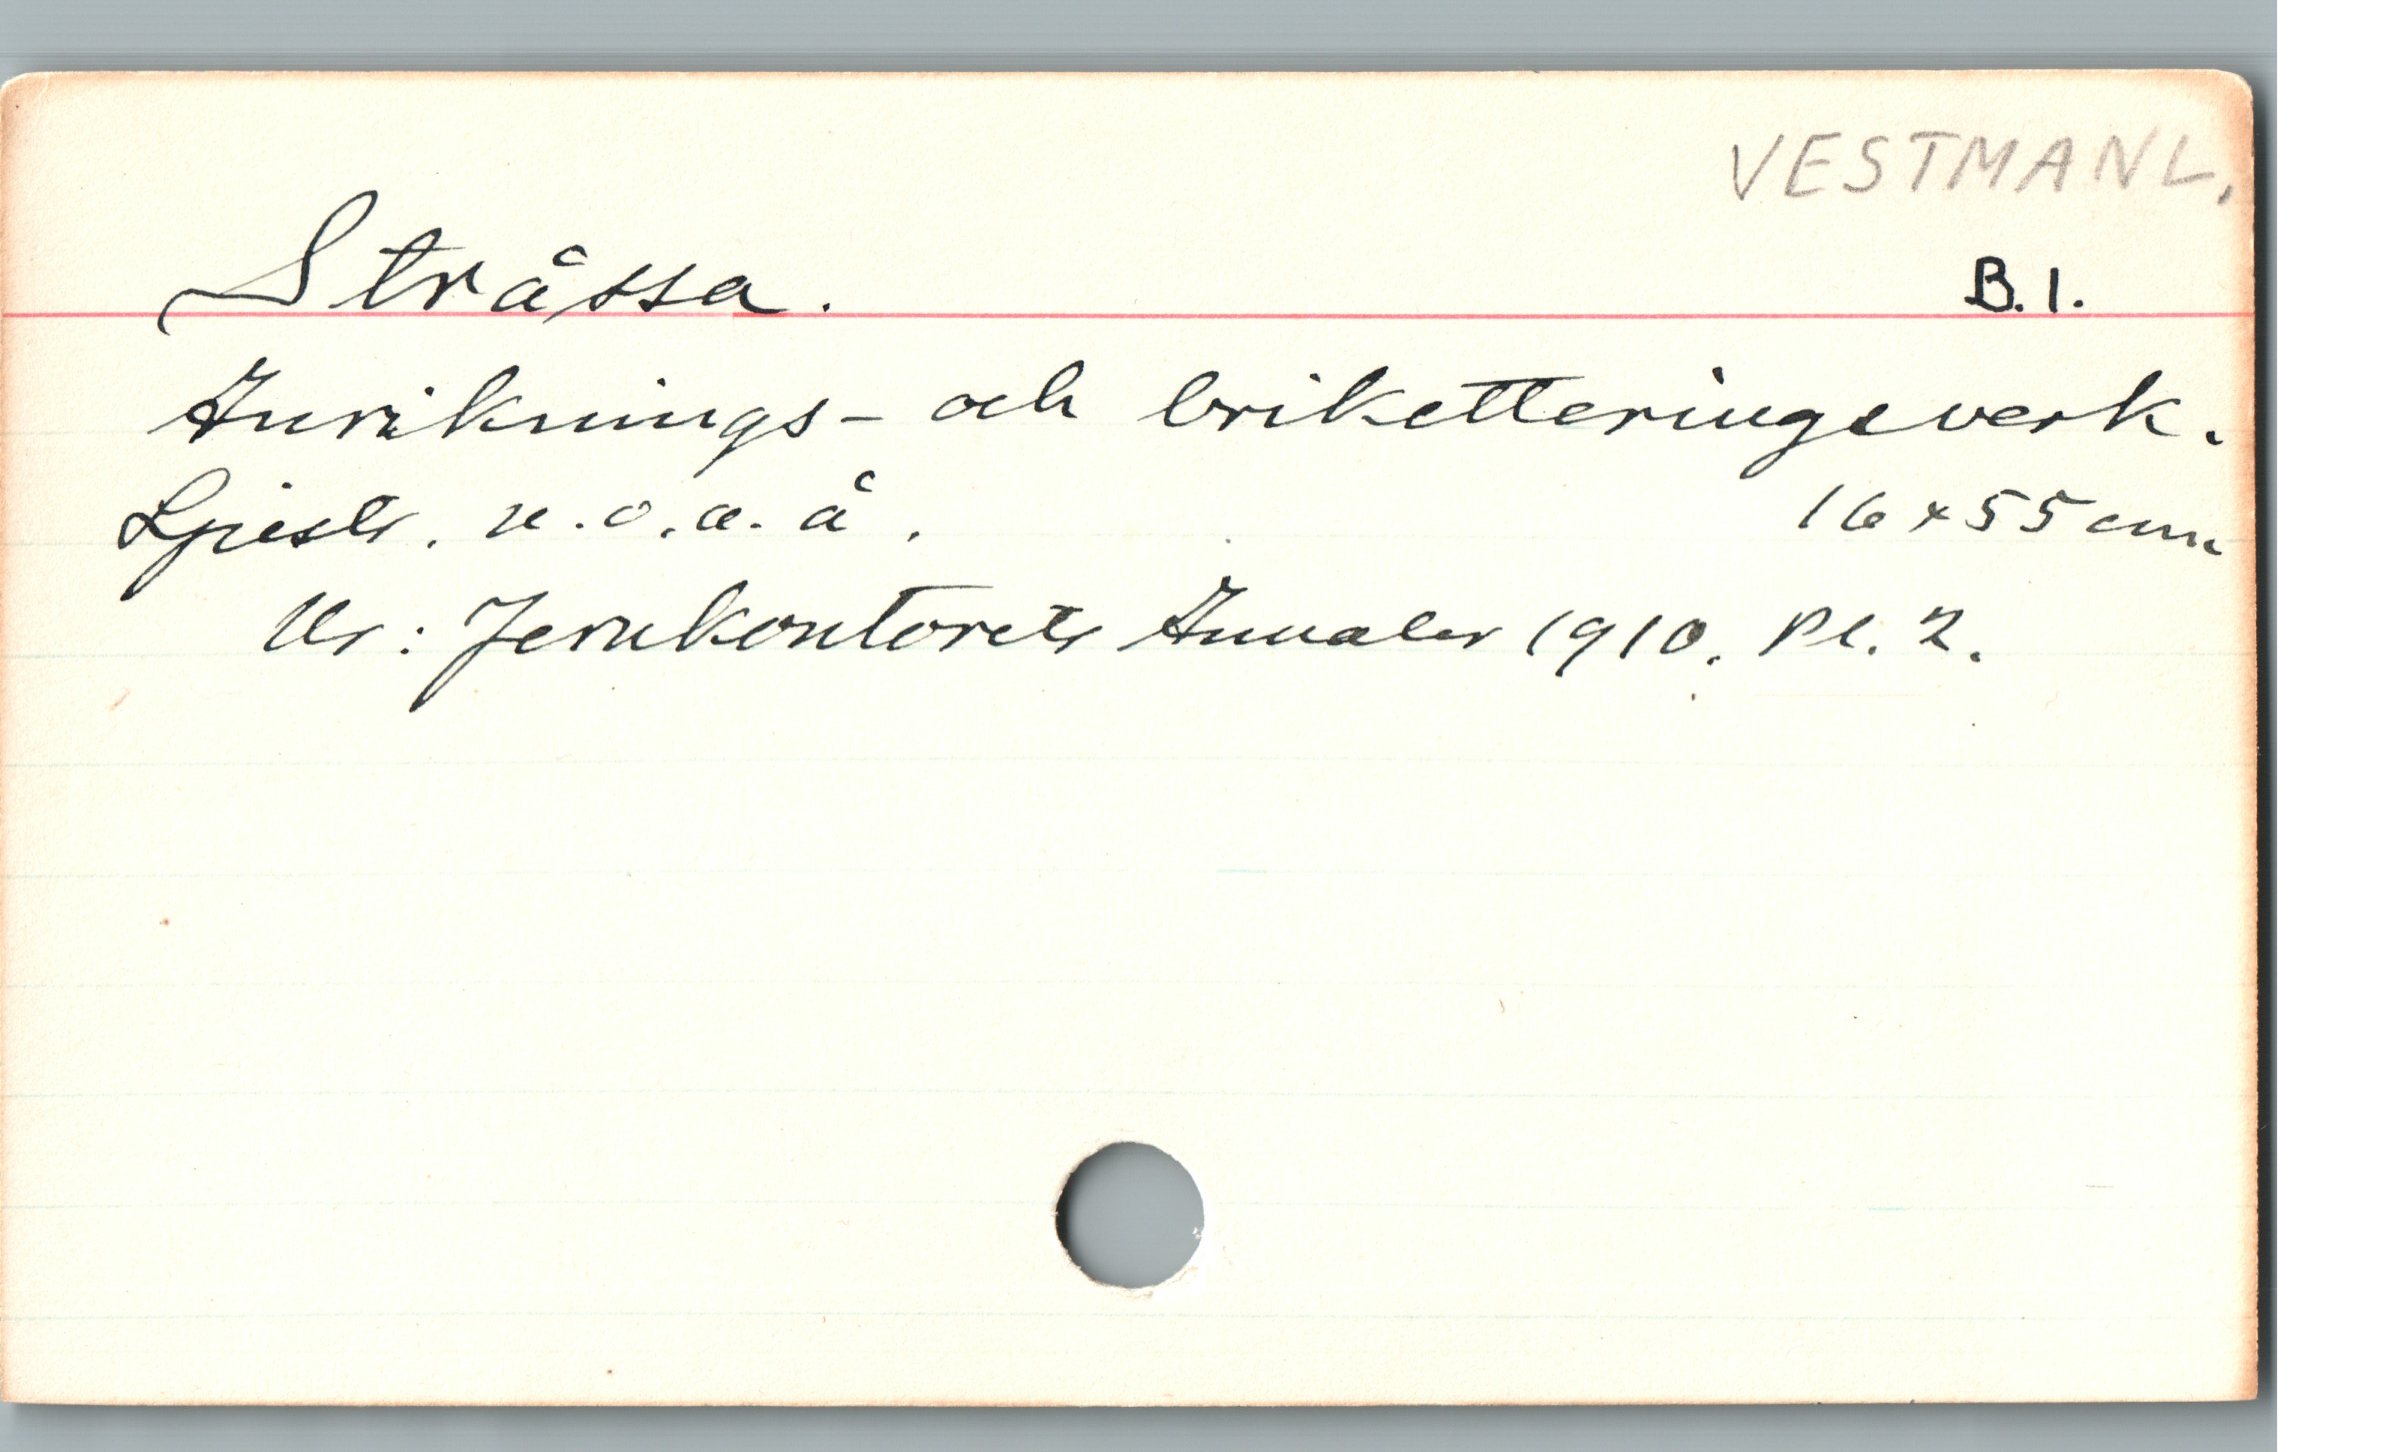 VESTMANL.
Stråssa. B. 1.
Anriknings- och briketteringsverk.
Ljustr. u.o.a. å. 16 x 55 cm
Ur: Jernkontorets Annaler 1910. Pl. 2.